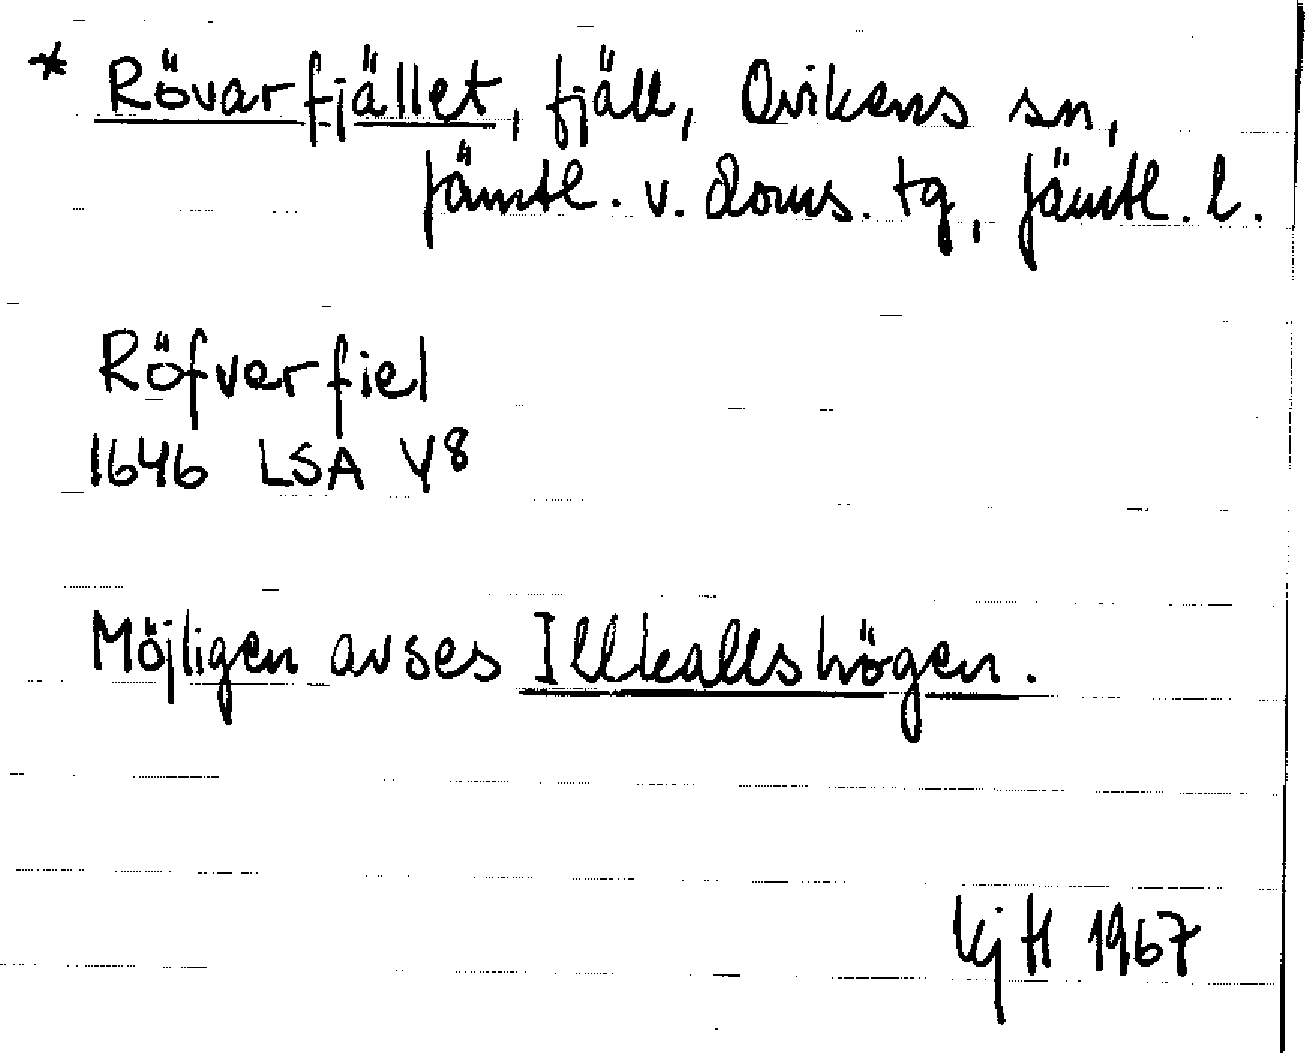 * Rövarfjället, fjäll, Ovikens sn,
Jämtl. v. doms. tg, Jämtl. l.
Röfverfiel
1646 LSA Y8
Möjligen avses Illkallshögen.
KjH 1967